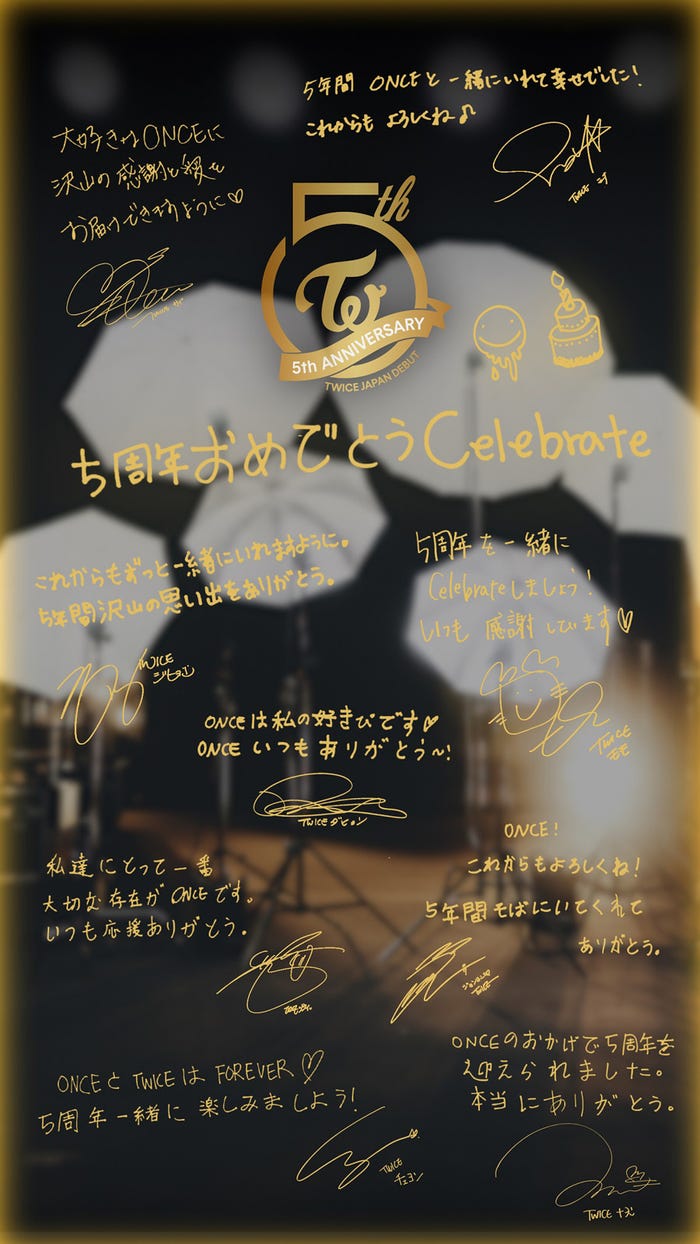 5年間 ONCEと一緒にいれて幸せでした!
これからも よろしくね♪
TWICE ミナ
大好きなONCEに
沢山の感謝と愛を
お届けできますように♡
TWICE サナ
5th
5th ANNIVERSARY
TWICE JAPAN DEBUT
5周年おめでとうCelebrate
これからもずっと一緒にいれますように。
5年間沢山の思い出をありがとう。
TWICE
ジヒョ
5周年を一緒に
Celebrateしましょう!
いつも 感謝しています♡
TWICE
モモ
ONCEは私の好きぴです♡
ONCE いつも ありがとう〜!
TWICE ダヒョン
私達にとって一番
大切な存在がONCEです。
いつも応援ありがとう。
ONCE!
これからもよろしくね!
5年間そばにいてくれて
ありがとう。
ジョンヨン
TWICE
ONCEのおかげで5周年を
迎えられました。
本当にありがとう。
TWICE ナヨン
ONCEとTWICEは FOREVER♡
5周年一緒に楽しみましよう!
TWICE
チェヨン